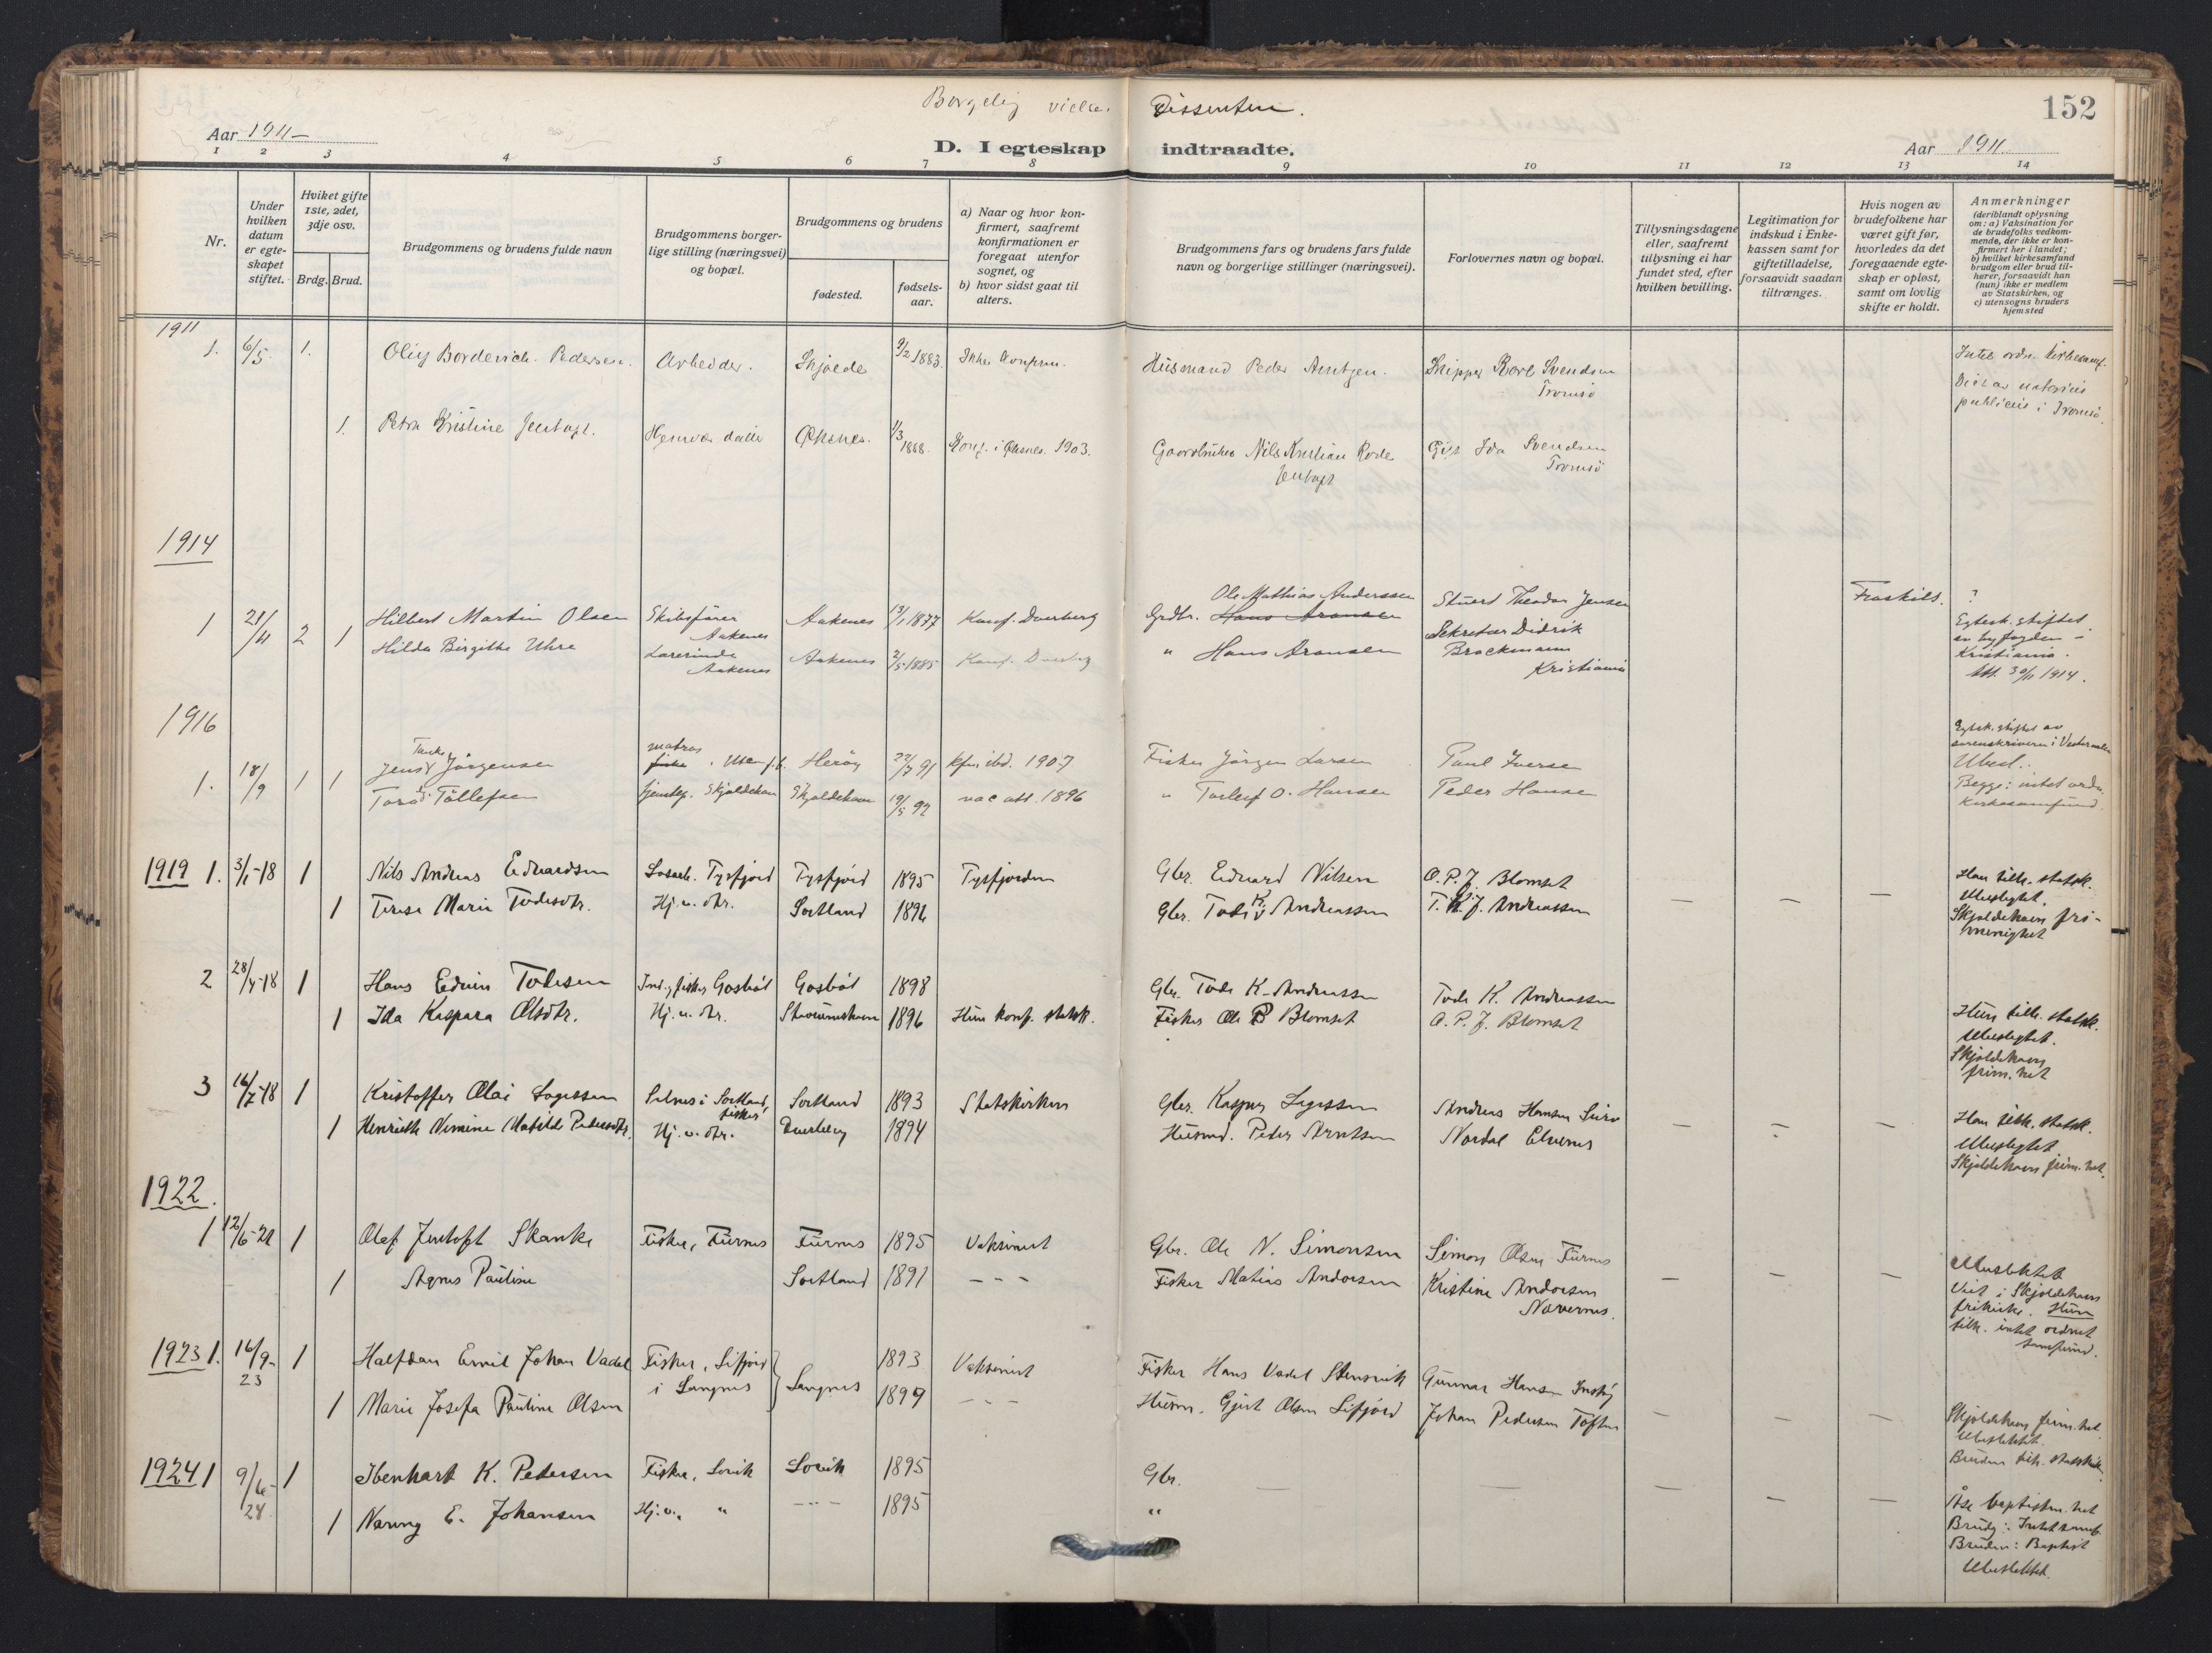 Borgelig vielse. Dissentere.
152
Aar 1911-
D. I egteskap indtraadte.
Aar 1911.
1 2 3 4 5 6 7 8 9 10 11 12 13 14
Nr.
Under
hvilken
datum
er egte-
skapet
stiftet.
Hviket gifte
1ste, 2det,
3dje osv.
Brdg. Brud.
Brudgommens og brudens fulde navn
Brudgommens borger-
lige stilling (næringsvei)
og bopæl.
Brudgommens og brudens
fødested.
fødsels-
aar.
a) Naar og hvor kon-
firmert, saafremt
konfirmationen er
foregaat utenfor
sognet, og
b) hvor sidst gaat til
alters.
Brudgommens fars og brudens fars fulde
navn og borgerlige stillinger (næringsvei).
Forlovernes navn og bopæl.
Tillysningsdagene
eller, saafremt
tillysning ei har
fundet sted, efter
hvilken bevilling.
Legitimation for
indskud i Enke-
kassen samt for
giftetilladelse,
forsaavidt saadan
tiltrænges.
Hvis nogen av
brudefolkene har
været gift før,
hvorledes da det
foregaaende egte-
skap er opløst,
samt om lovlig
skifte er holdt.
Anmerkninger
(deriblandt oplysning
om: a) Vaksination for
de brudefolks vedkom-
mende, der ikke er kon-
firmert her i landet;
b) hvilket kirkesamfund
brudgom eller brud til-
hører, forsaavidt han
(hun) ikke er medlem
av Statskirken, og
c) utensogns bruders
hjemsted
1911
1. 6/5. 1. Pedersen. Arbeider. 9/2 1883. Ikke konfirm. Husmand Peder Arntzen. Skipper Karl Svendsen
Tromsö
Intet ordn. kirkesamf.
publicus i Tromsö.
1. Petra Kristine Jentoft. Øksnes. 1/3 1888. Konf. i Øksnes. 1903. Gaardbruker Nils Kristian Rode
Jentoft
Ida Svendsen
Tromsö
1914
1 21/11 2 1 Hilbert Martin Olsen Skibsfører
Aakenes
Aakenes 13/1 1877 Konf. Dverberg Ole Mathias Anderssen
Grdbr. Hans Aronsen
Stuert Theodor Jensen
Fraskilt. ?
Hilda Birgithe Uhre Lærerinde
Aakenes
Aakenes 2/5 1885 Konf. Dverberg " Hans Aronsen Sekretær Didrik
Brockmann
Kristiania
Egtesk. stiftet
av byfogden i
Kristiania.
Att. 30/11 1914.
1916
1. 18/9 1 1 Jens Jörgensen matros
Herøy 22/7 91 kfm ibd. 1907 Fisker Jörgen Larsen Paul Iversen
Egtesk. stiftet av
sorenskriveren i Vesteraalen
Ubesl.
Begge: intet ordn.
kirkesamfund.
Tora Tollefsen Skjoldehavn Skjoldehavn 19/5 92 vac att. 1896 " Torleif O. Hansen Peder Hansen
1919 1. 3/1-18 1 Nils Andreas Edvardsen Tysfjord Tysfjord 1895 Tysfjorden Gbr. Edvard Nilsen O. P. J. Blomset
1 Terese Marie Todesdtr. Hj.v. dtr. Sortland 1896 Gbr. Tode K. Andreassen T. K. J. Andreassen — — —
Han tilh. statsk.
Ubeslegtet.
Skjoldehavn fri-
menighet
2 28/4-18 1 Hans Edvin Todesen Gosbøl Gosbøl 1898 Gbr. Tode K. Andreassen Tode K. Andreassen
1 Ida Kaspara Olsdtr. Hj. v. dtr. 1896 Hun konf. statsk. Fisker Ole P Blomset O. P. J. Blomset
Hun tilh. statsk.
Ubeslegtet.
Skjoldehavn
frim.het
3 16/7-18 1 Kristoffer Olai i Sortland,
fisker
Sortland 1893 Statskirken Gbr. Kaspar Andreas Hansen
1 Henriette Nimine Matilde Pedersdtr. Hj. v. dtr. Dverberg 1894 Husmd. Peder Arntsen Nordal Elvenes — — —
Han tilh. statsk.
Ubeslegtet
Skjoldehavn frim. het.
1922.
1 12/6-21 1 Olaf Jentoft Skanke Fisker, Furnes Furnes 1895 Vaksinert Gbr. Ole N. Simonsen Simon Olsen Furnes
1 Agnes Pauline Sortland 1891 - - - Fisker Matias Andorsen Kristine Andorsen
— — —
Ubeslektet
Viet i Skjoldehavn
frikirke. Hun
tilh. intet ordnet
samfund.
1923 1. 16/9-
23 1 Halfdan Emil Johan Vadel Fisker, Lifjord
i Langnes
Langnes 1893 Vaksinert Fisker Hans Vadel Stensvik Gunnar Hansen
1 Marie Josefa Pauline Olsen 1899 - - - Husm. Gjert Olsen Lifjord Johan Pedersen Toften — — —
Skjoldehavn frim.het.
Ubeslektet.
Bruden tilh. statskirken.
1924 1 9/6-
24 1 Ibenhart K. Petersen Fisker, Sovik Sovik 1895 Gbr. — — — — —
1 E. Johansen Hj.v., " - - - 1895 "
Åse baptistm.het
Brudg: Intet samf.
Bruden: Baptist
Ubeslektet.